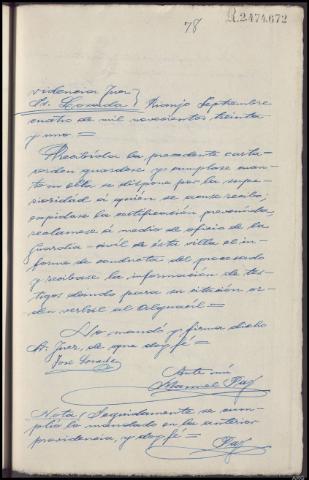 78
R.2474.672
videncia Juez
Sr. Losada } Naranjo Septiembre
cuatro de mil novecientos treinta
y uno =
Recibida la precedente carta-
orden guardese y cumplase cuan-
to en ella se dispone por la supe-
rioridad a quien se acuse recibo,
expidase la certificación prevenida,
reclamese si medio de oficio de la
Guardia-civil de ésta villa el in-
forme de conducta del procesado
y recibase la información de tes-
tigos dando para su citación or-
den verbal al Alguacil =
Lo mandó y firma dicho
Sr. Juez, de que doy fé =
José Losada
Ante mi
Manuel Paz
Nota/ Seguidamente se cum-
plió lo mandado en la anterior
providencia, y doy fé =
Paz